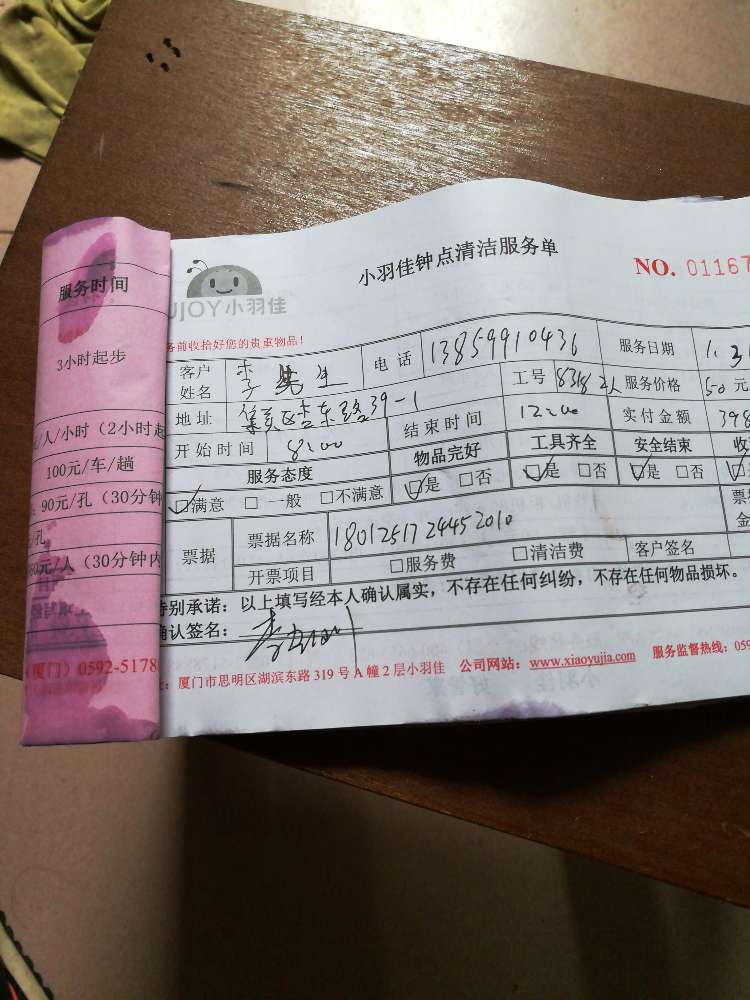 服务时间
3小时起步
/人/小时（2小时起
100元/车/趟
90元/孔（30分钟
孔
60元/人（30分钟内
厦门）0592-5178
小羽佳钟点清洁服务单
NO. 01167
JOY小羽佳
务前收拾好您的贵重物品！
客户姓名 李先生 电话 13859910436 服务日期 1.3
地址 集美区杏东路39-1 工号 8318 2人 服务价格 50元
开始时间 8:00 结束时间 12:00 实付金额 398
服务态度 物品完好 工具齐全 安全结束 收
□满意 □一般 □不满意 □是 □否 □是 □否 □是 □否
票据 票据名称 1801251724452010 票
开票项目 □服务费 □清洁费 客户签名 金
特别承诺：以上填写经本人确认属实，不存在任何纠纷，不存在任何物品损坏。
确认签名：
：厦门市思明区湖滨东路319号A幢2层小羽佳 公司网站：www.xiaoyujia.com 服务监督热线：059